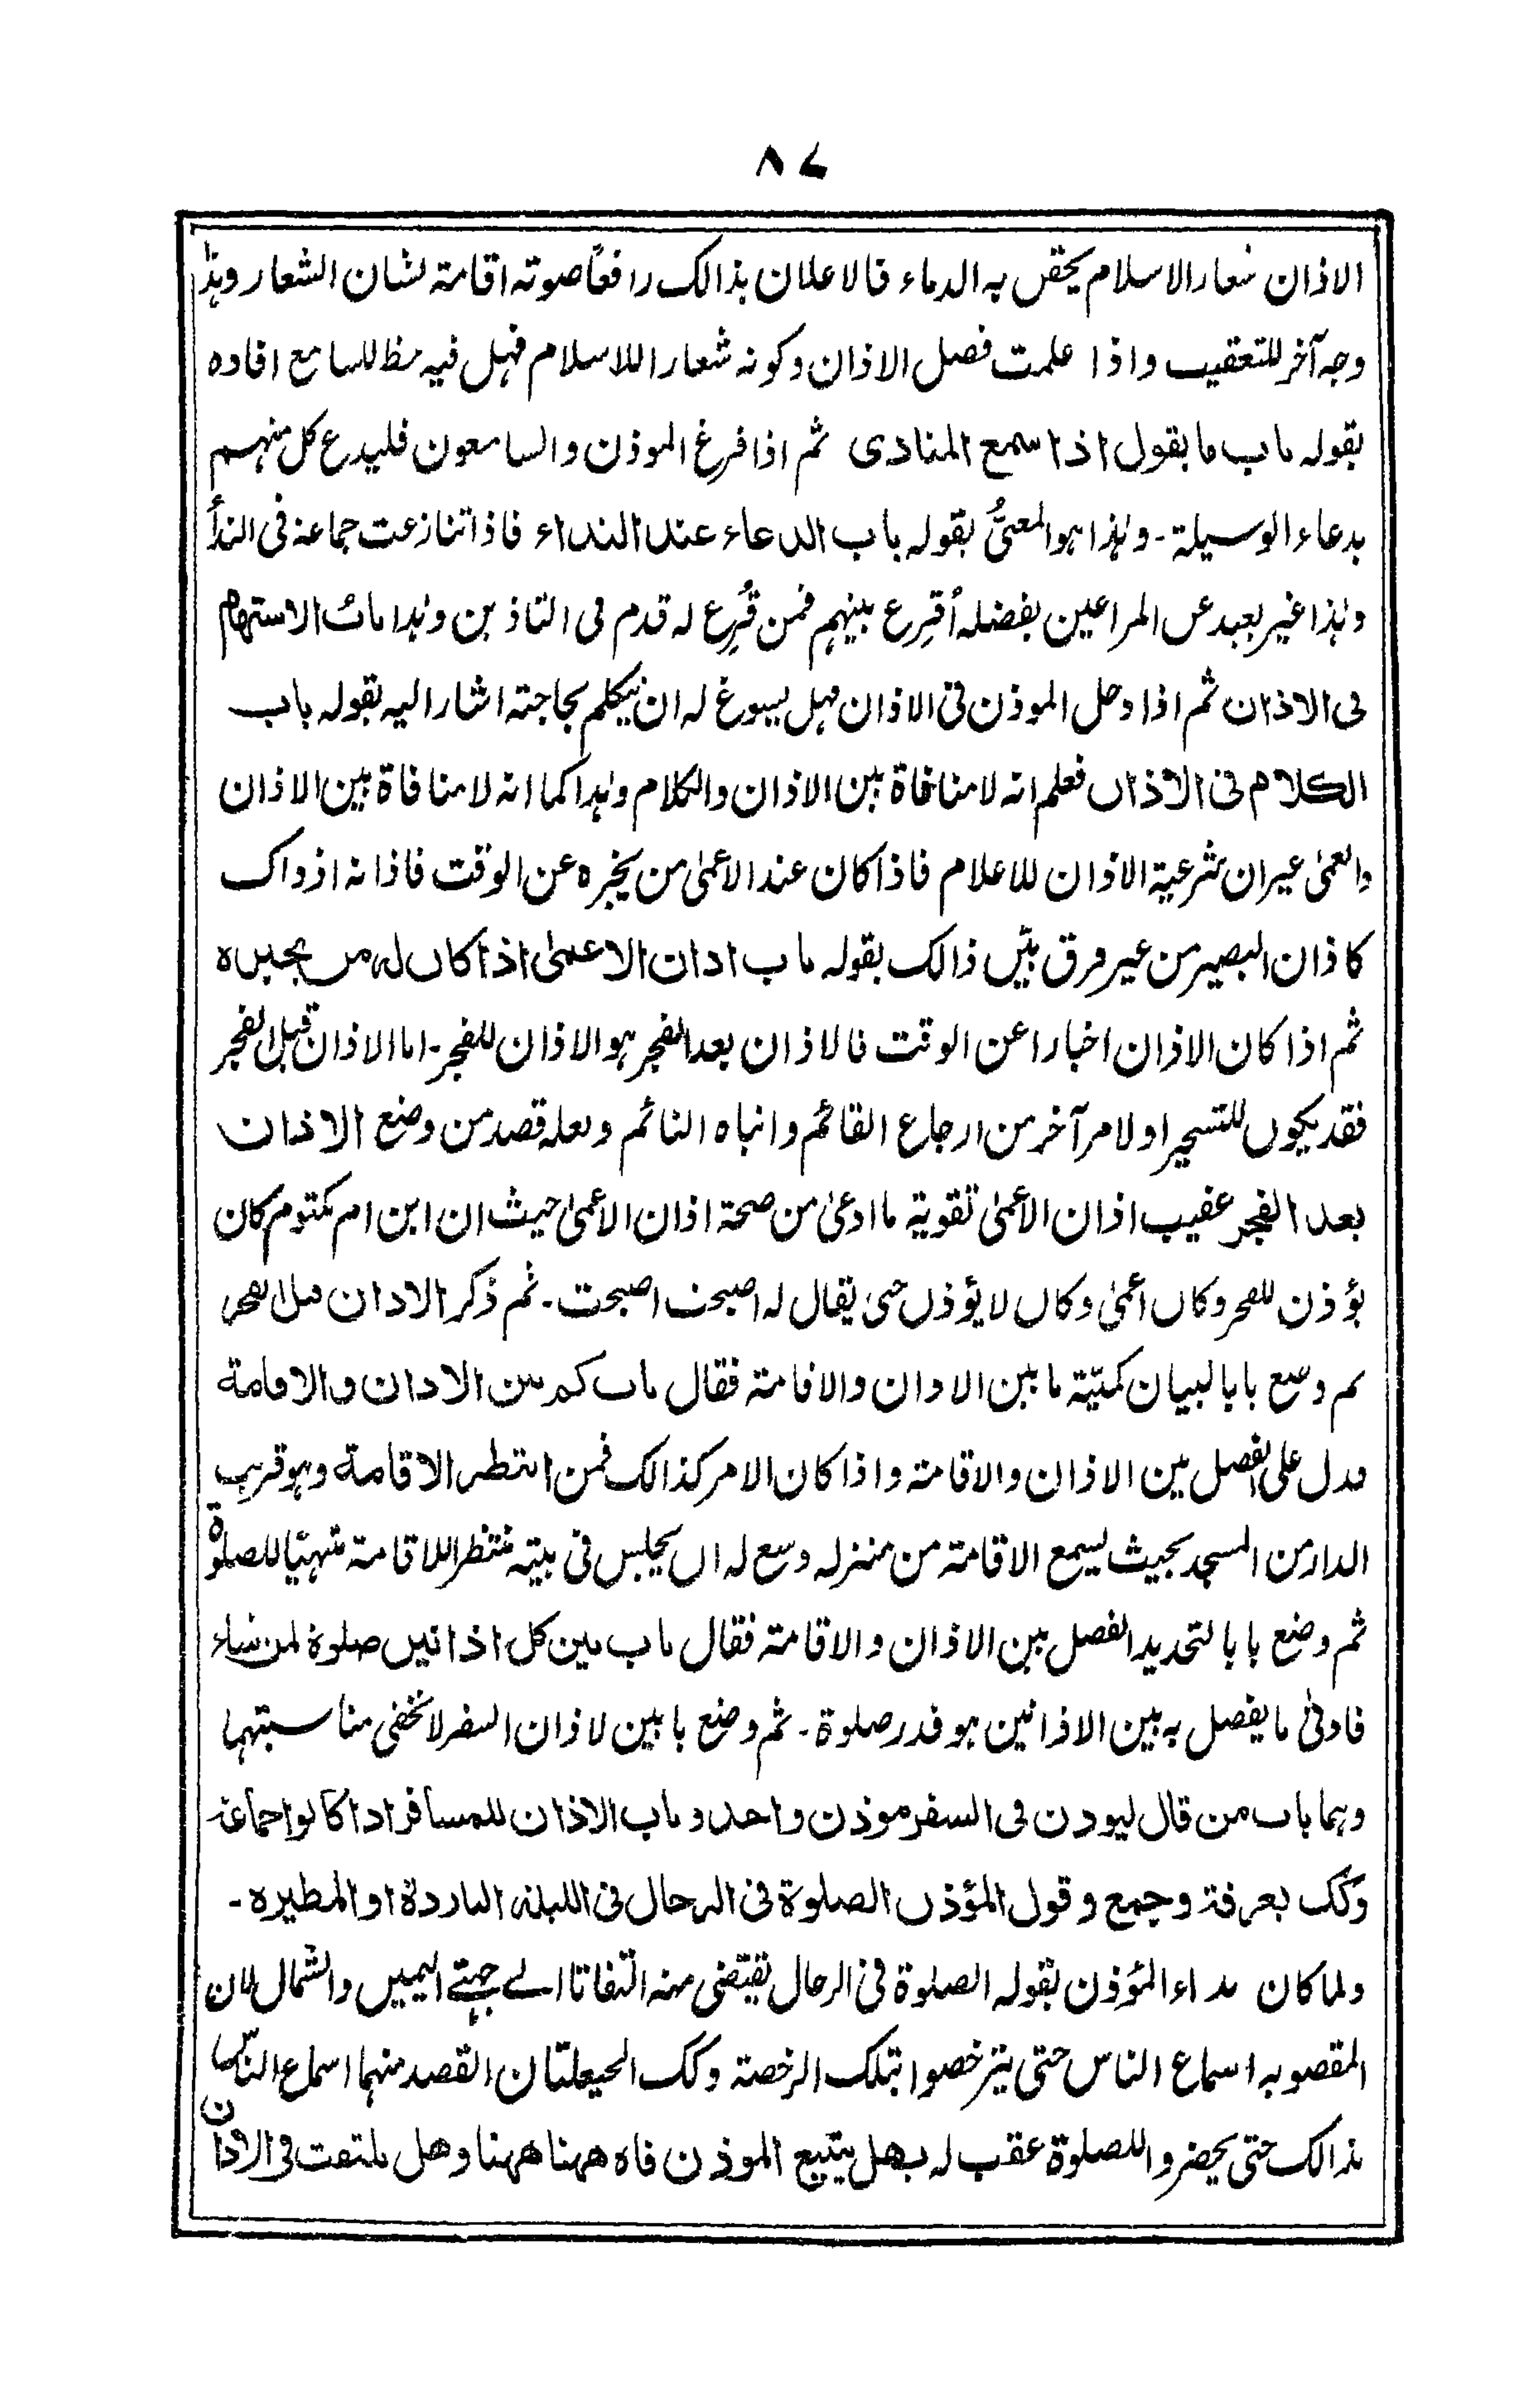 ۸۷
الاذان شعار الاسلام یحقن به الدماء فالاعلان بذالک رافعًا صوته اقامة لشان الشعار وہذا
وجہ آخر للتعقیب واذا علمت فصل الاذان وکونه شعارا للاسلام فہل فیه حظ للسامع افادہ
بقوله باب ما یقول اذا سمع المنادی ثم اذا فرغ الموذن والسامعون فلیدع کل منہم
بدعاء الوسیلة۔ وہذا ہو المعنیُّ بقوله باب الدعاء عند النداء فاذا تنازعت جماعة فی الندأ
وہذا غیر بعید عن المراعین بفضله أقرع بینہم فمن قُرِع له قدم فی التاذین وہذا باب الاستهام
فی الاذان ثم اذا دخل الموذن فی الاذان فہل یسوغ له ان یتکلم بحاجته اشار الیه بقوله باب
الکلام فی الاذان فعلم انه لا منافاة بین الاذان والکلام وہذا کما انه لا منافاة بین الاذان
والعمیٰ غیر ان شرعیة الاذان للاعلام فاذا کان عند الاعمیٰ من یخبرہ عن الوقت فاذانه اذ ذاک
کاذان البصیر من غیر فرق بیّن ذالک بقوله باب اذان الاعمیٰ اذا کان له من یخبرہ
ثم اذا کان الاذان اخبارا عن الوقت فالاذان بعد الفجر ہو الاذان للفجر۔ اما الاذان قبل الفجر
فقد یکون للتسحیر او لامر آخر من ارجاع القائم وانباہ النائم ولعله قصد من وضع الاذان
بعد الفجر عقیب اذان الاعمیٰ تقویة ما ادعیٰ من صحة اذان الاعمیٰ حیث ان ابن ام مکتوم کان
یؤذن للفجر وکان اعمیٰ وکان لا یؤذن حتی یقال له اصبحت اصبحت۔ ثم ذکر الاذان قبل الفجر
ثم وضع بابا لبیان کمیّة ما بین الاذان والاقامة فقال باب کم بین الاذان والاقامة
فدل علی الفصل بین الاذان والاقامة واذا کان الامر کذالک فمن انتظر الاقامة وہو قریب
الدار من المسجد بحیث یسمع الاقامة من منزله وسع له ان یجلس فی بیته منتظرا للاقامة متہیّا للصلوة
ثم وضع بابا لتحدید الفصل بین الاذان والاقامة فقال باب بین کل اذانین صلوة لمن شاء
فادنیٰ ما یفصل به بین الاذانین ہو قدر صلوة۔ ثم وضع بابین لاذان السفر لا تخفی مناسبتہما
وہما باب من قال لیوذن فی السفر موذن واحد و باب الاذان للمسافر اذا کانوا جماعة
وکک بعرفة وجمع وقول المؤذن الصلوة فی الرحال فی اللیلة الباردة او المطیرہ۔
ولما کان نداء المؤذن بقوله الصلوة فی الرحال یقتضی منه التفاتا الے جہتے الیمین والشمال لان
المقصوبه اسماع الناس حتی یترخصوا بتلک الرخصة وکک الحیعلتان القصد منہما اسماع الناس
بذالک حتی یحضروا للصلوة عقب له بهل یتتبع الموذن فاہ ههنا ههنا وهل یلتفت فی الاذان